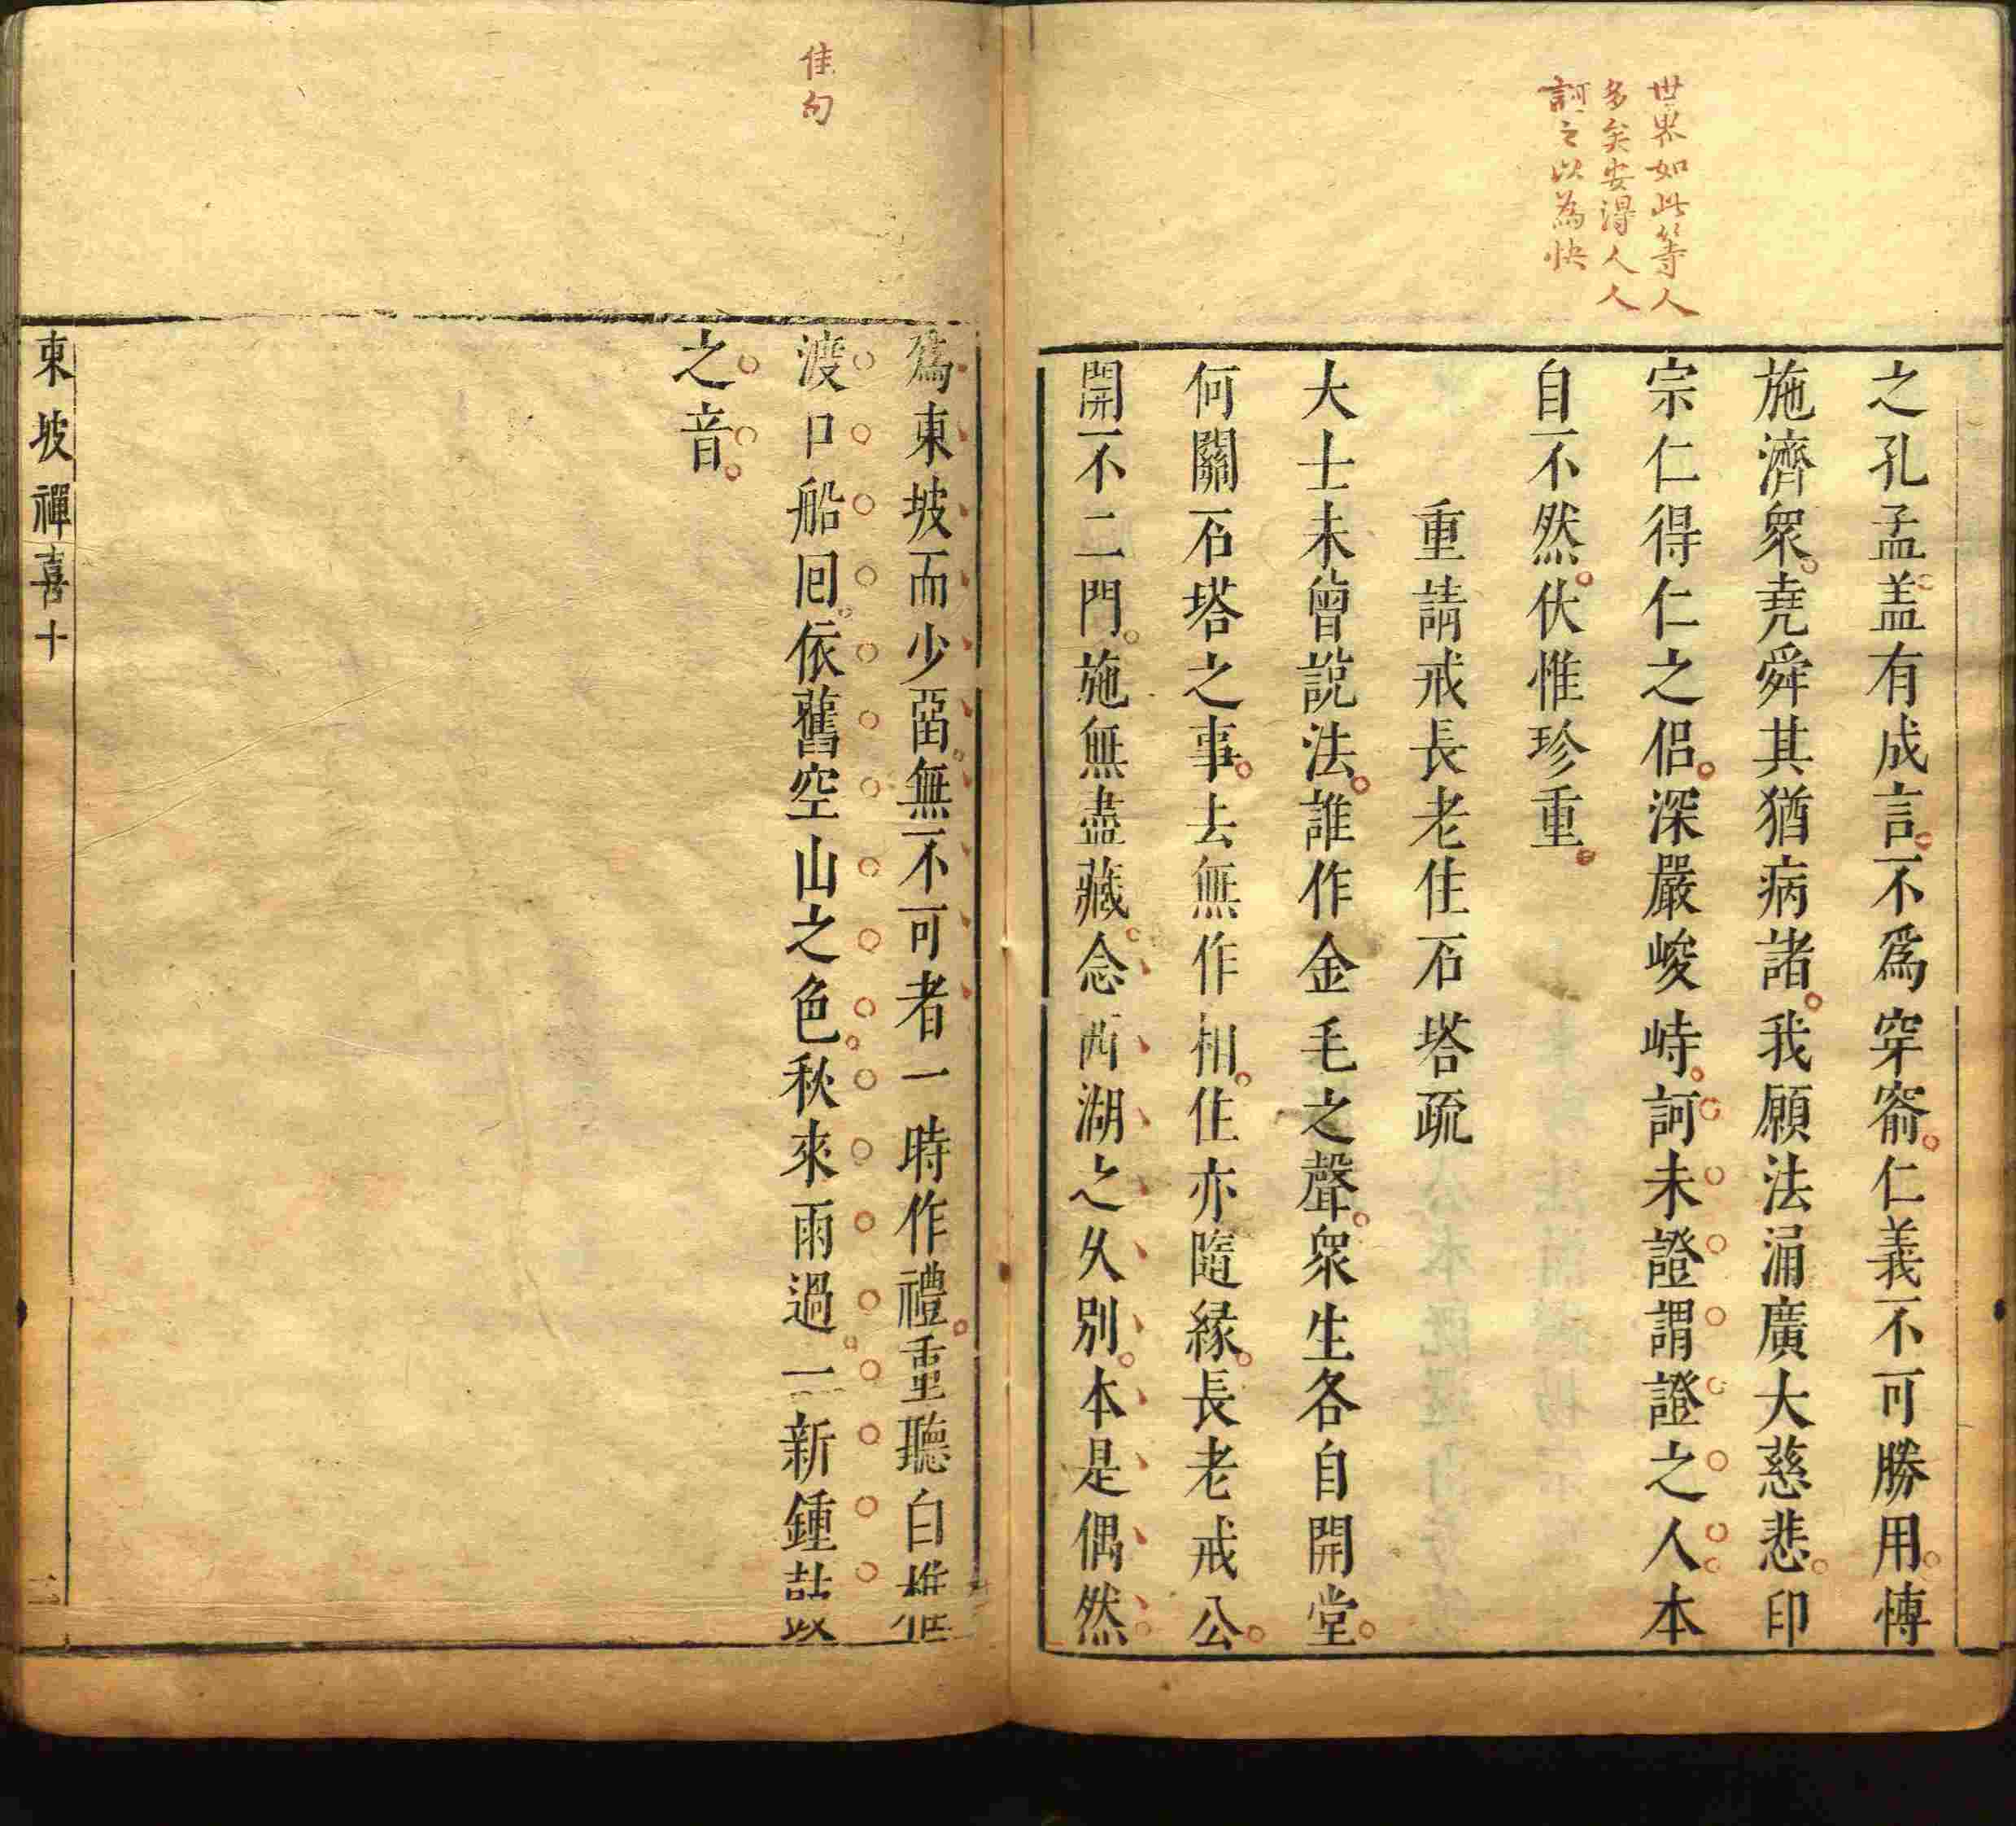 世界如此等人
多矣安得人人
訶之以為快
之孔孟盖有成言不爲穿窬仁義不可勝用博
施濟衆堯舜其猶病諸我願法涌廣大慈悲印
宗仁得仁之侣深嚴峻峙訶未證謂證之人本
自不然伏惟珍重
重請戒長老住石塔疏
大士未曾說法誰作金毛之聲衆生各自開堂
何關石塔之事去無作相住亦隨緣長老戒公
開不二門施無盡藏念西湖之久別本是偶然
佳句
爲東坡而少畱無不可者一時作禮重聽白椎惟
渡口船囘依舊空山之色秋來雨過一新鍾鼓
之音
東坡禪喜十
二